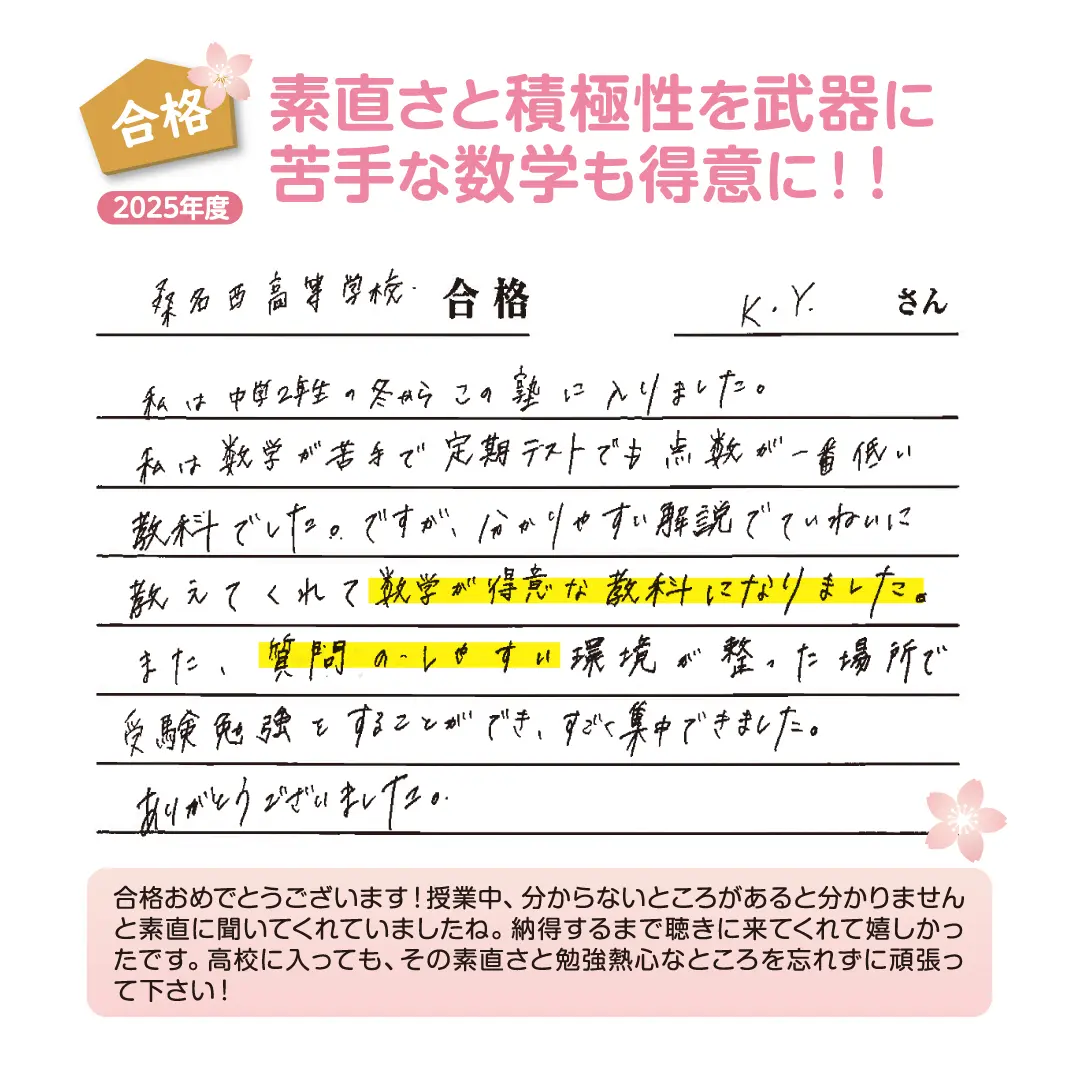 合格
2025年度
素直さと積極性を武器に
苦手な数学も得意に！！
桑名西高等学校 合格 K.Y. さん
私は中学2年生の冬からこの塾に入りました。
私は数学が苦手で定期テストでも点数が一番低い
教科でした。ですが、分かりやすい解説でていねいに
教えてくれて数学が得意な教科になりました。
また、質問のしやすい環境が整った場所で
受験勉強をすることができ、すごく集中できました。
ありがとうございました。
合格おめでとうございます！授業中、分からないところがあると分かりません
と素直に聞いてくれていましたね。納得するまで聴きに来てくれて嬉しかっ
たです。高校に入っても、その素直さと勉強熱心なところを忘れずに頑張っ
て下さい！